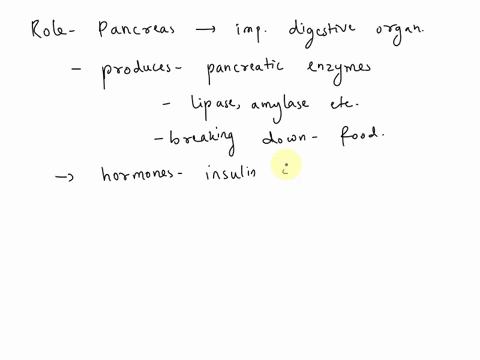 Role- Pancreas → imp. digestive organ.
- produces- pancreatic enzymes
- lipase, amylase etc.
- breaking down- food.
→ hormones- insulin i